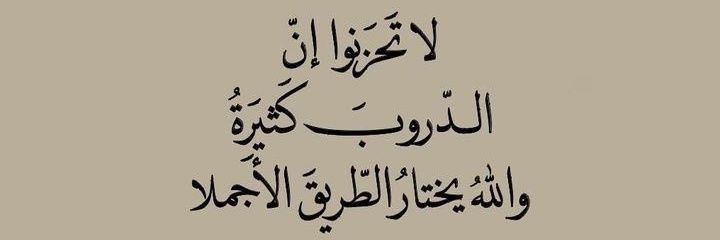 لا تَحزَنوا إنّ
الـدّروبَ كَثيَرةُ
واللهُ يختارُ الطّريقَ الأَجملا